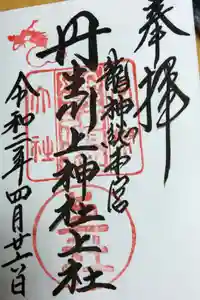 奉拝
龍神総本宮
丹生川上神社上社
令和二年四月廿六日